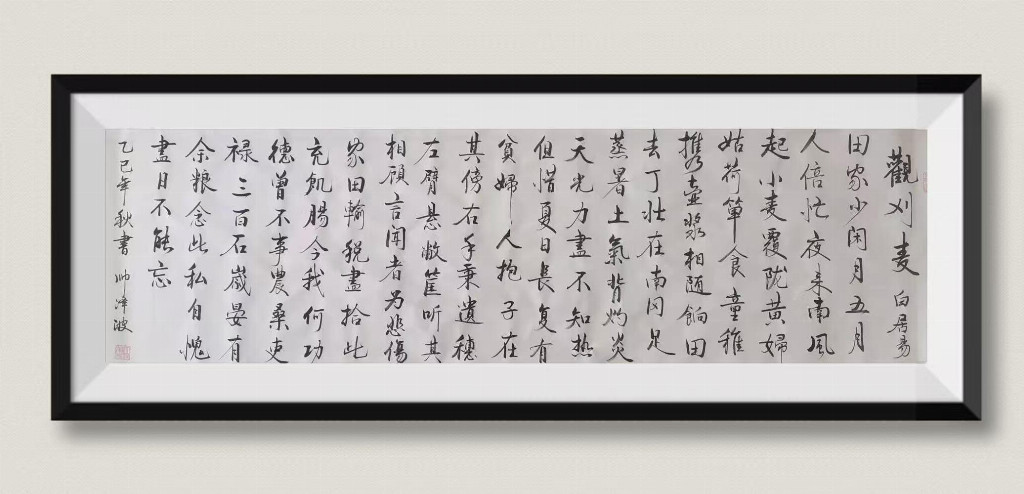 觀刈麦 白居易
田家少闲月五月
人倍忙夜来南風
起小麦覆陇黄婦
姑荷箪食童稚
携壶浆相随餉田
去丁壮在南冈足
蒸暑土氣背灼炎
天光力盡不知热
但惜夏日長复有
貧婦人抱子在
其傍右手秉遺穗
左臂悬敝筐听其
相顾言闻者为悲傷
家田輸税盡拾此
充飢腸今我何功
德曾不事農桑吏
禄三百石嵗晏有
余粮念此私自愧
盡日不能忘
乙巳年秋書 帅泽波